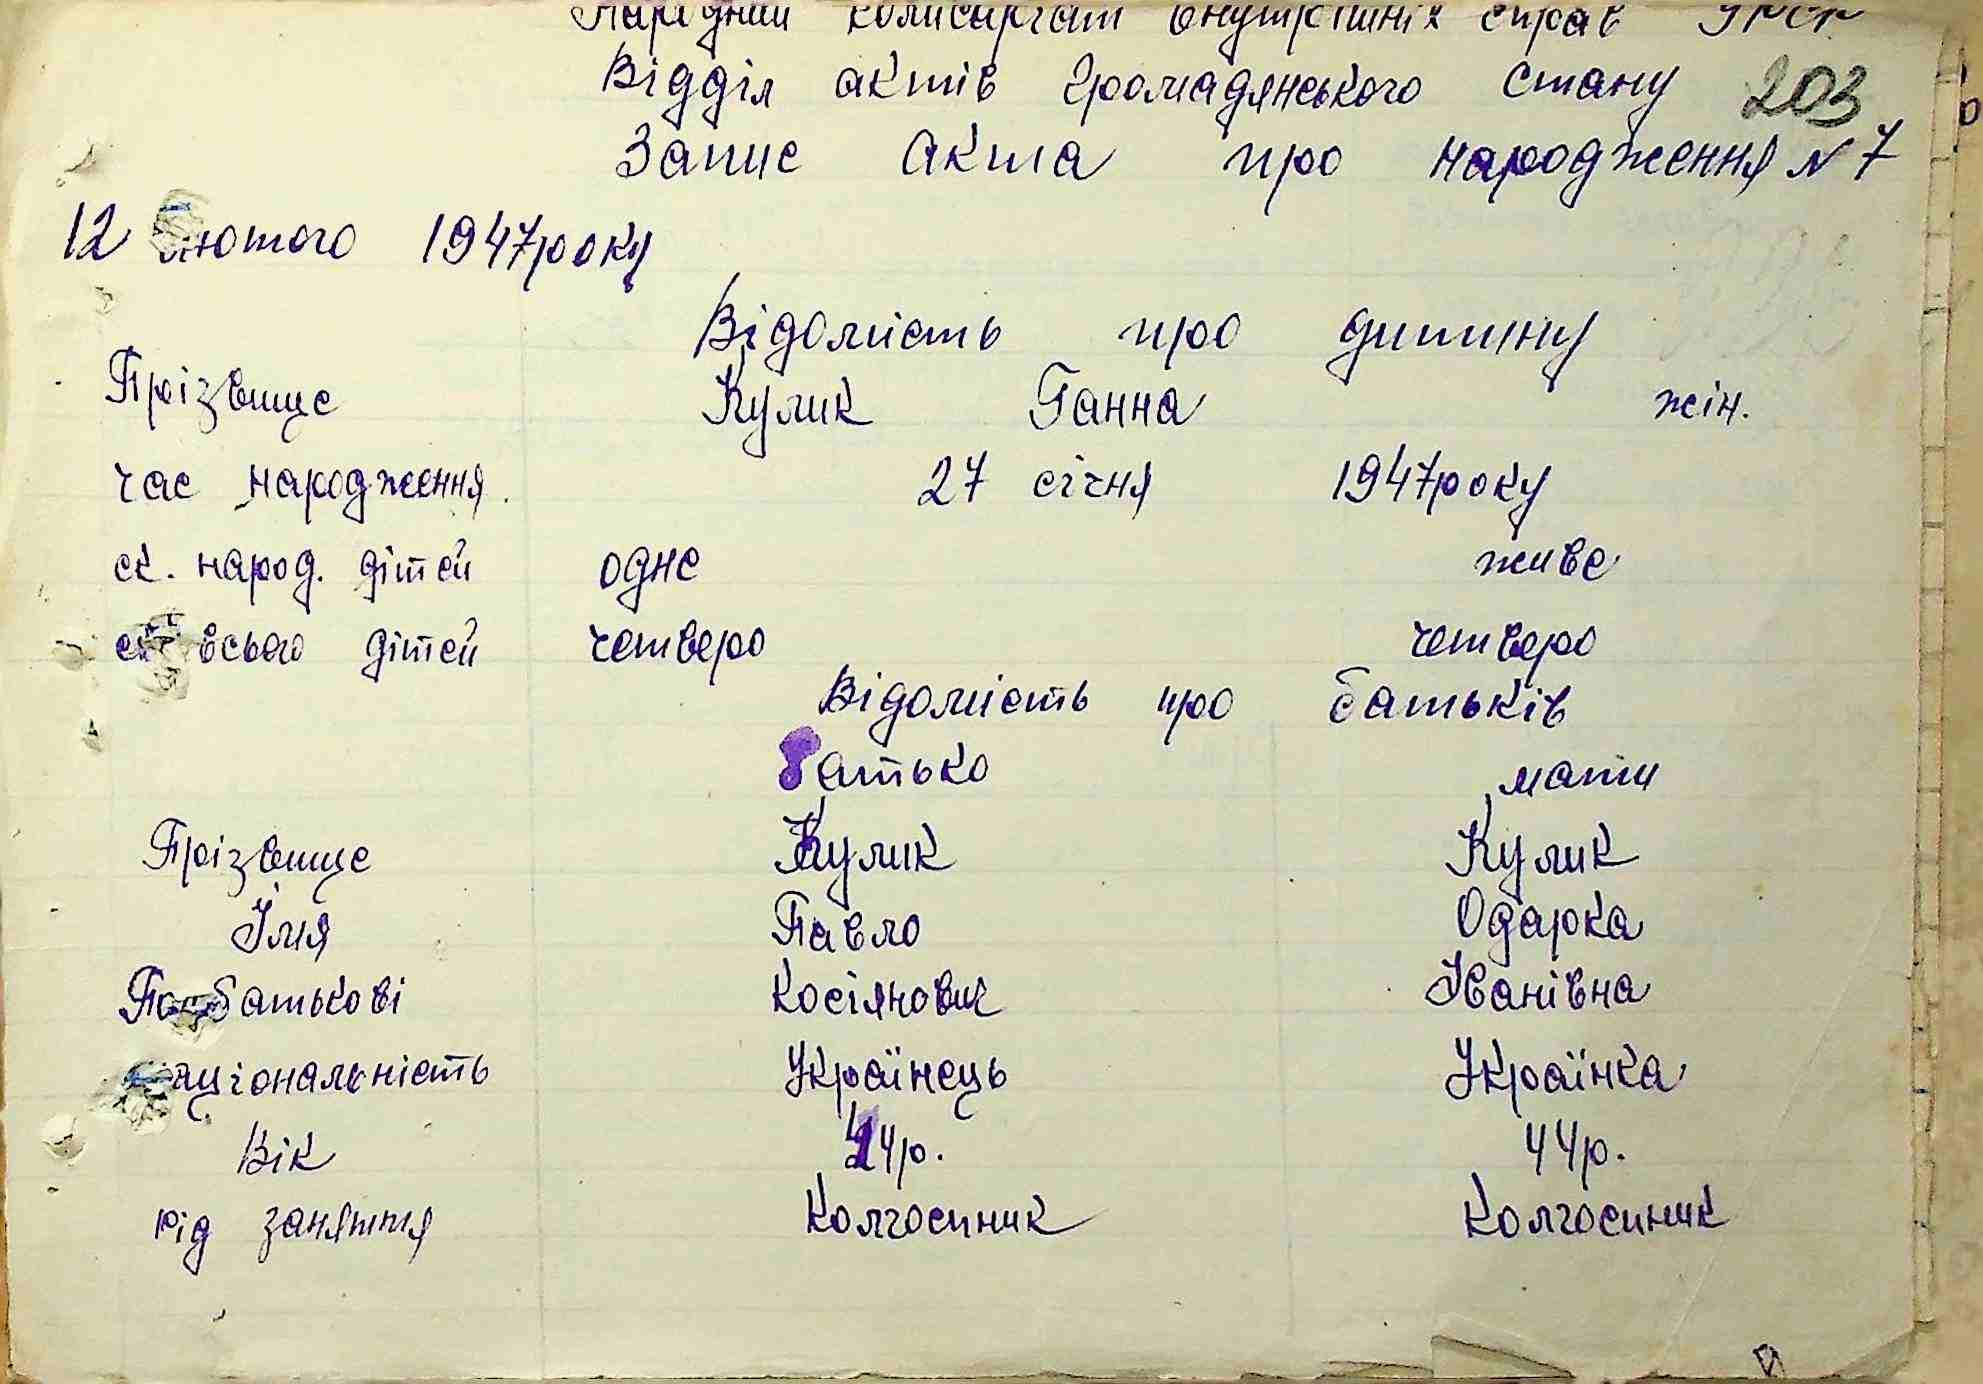 Народний комісаріат внутрішніх справ УРСР
Відділ актів громадянського стану 203
Запис акта про народження № 7
12 лютого 1947року
Відомість про дитину
Прізвище Кулик Ганна жін.
час народження. 27 січня 1947року
ск. народ. дітей одне живе
ск всього дітей четверо четверо
Відомість про батьків
батько мати
Прізвище Кулик Кулик
Імя Павло Одарка
По батькові Косіянович Іванівна
національність Українець Українка
Вік 44р. 44р.
рід заняття Колгоспник Колгоспник